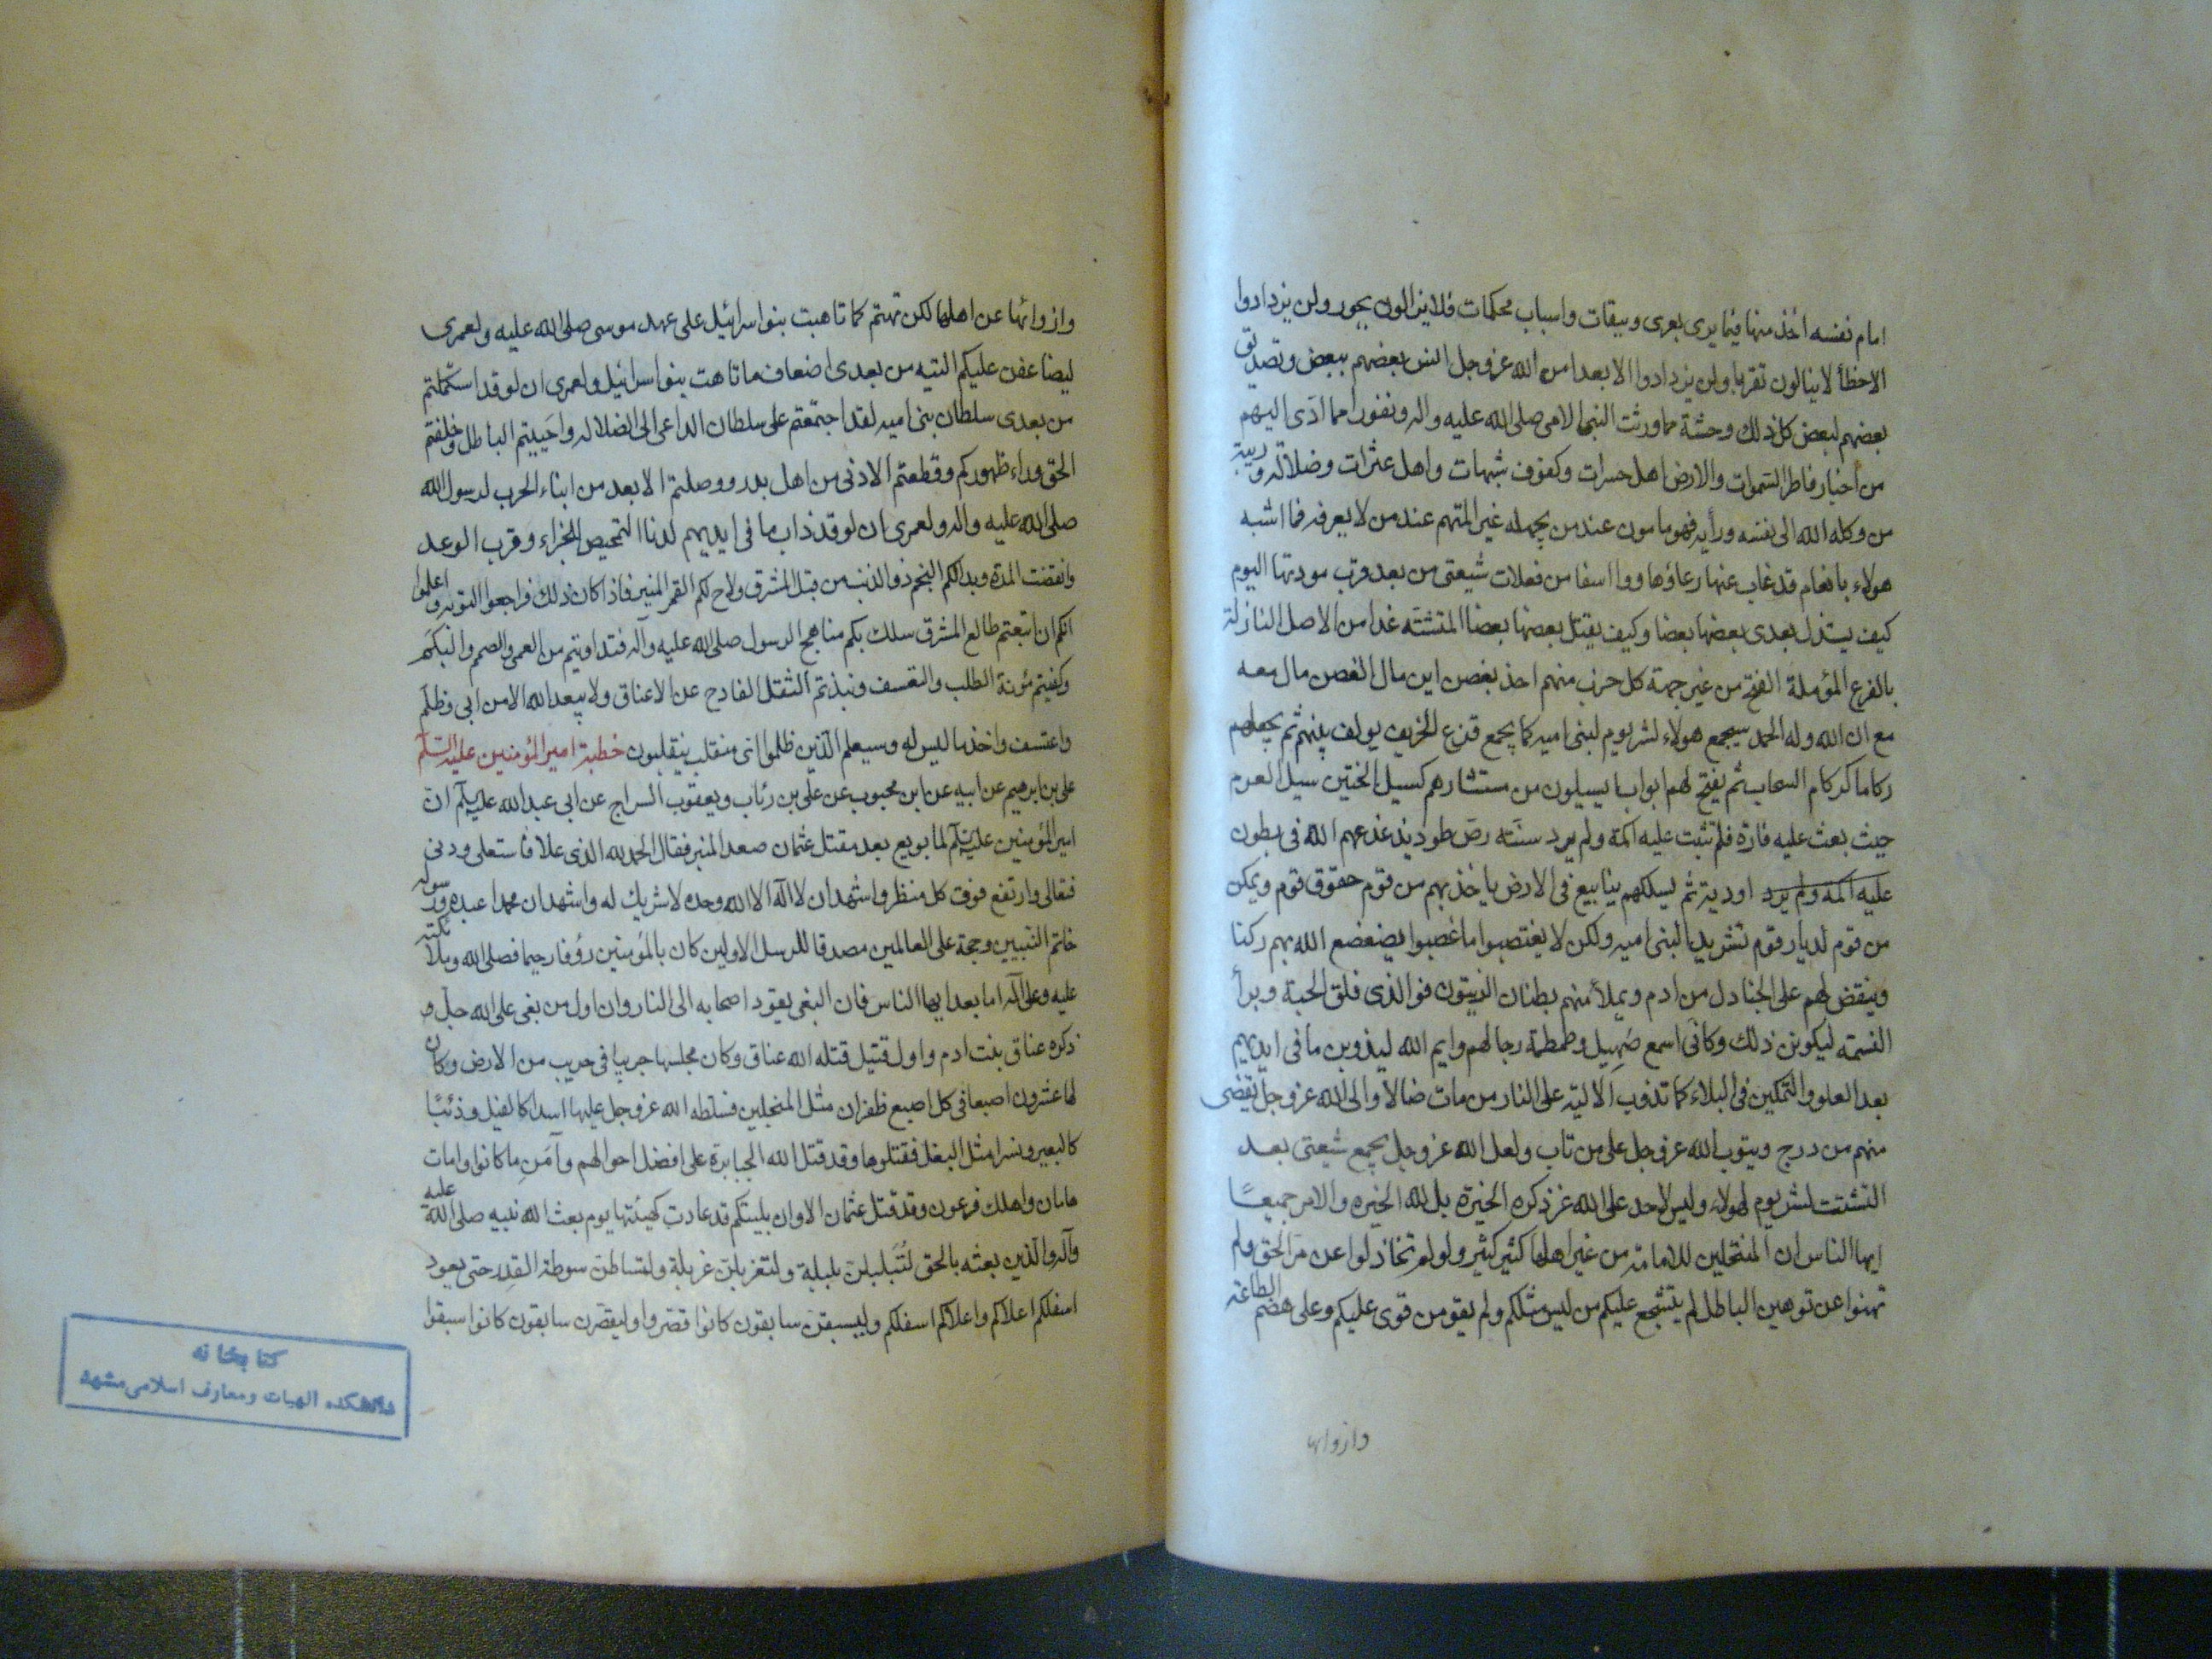 امام نفسه اخذ منها فيما يرى بعرى وثيقات واسباب محكمات فلا يزالون بجور ولن يزدادوا
الا خطأ لا ينالون تقربا ولن يزدادوا الا بعدا من الله عز وجل انس بعضهم ببعض وتصديق
بعضهم لبعض كل ذلك وحشة مما ورث النبي الامى صلى الله عليه واله ونفورا مما ادّى اليهم
من اخبار فاطر السموات والارض اهل حسرات وكهوف شبهات واهل عثرات وضلالة وريبة
من وكله الله الى نفسه ورأيه فهو مامون عند من يجهله غير المتهم عند من لا يعرفه فما اشبه
هولاء بانعام قد غاب عنها رعاؤها ووا اسفا من فعلات شيعتى من بعد قرب مودتها اليوم
كيف يستذل بعدى بعضها بعضا وكيف يقتل بعضها بعضا المتشتته غدا من الاصل النازلة
بالفرع المؤملة الفتح من غير جهة كل حزب منهم اخذ بغصن اين مال الغصن مال معه
مع ان الله وله الحمد سيجمع هولاء لشر يوم لبنى اميه كما يجمع قزع الخريف يولف بينهم ثم يجعلهم
ركاما كركام السحاب ثم يفتح لهم ابوابا يسيلون من مستثارهم كسيل الجنتين سيل العرم
حيث بعث عليه فارة فلم تثبت عليه اكمة ولم يرد سننه رص طود يذعذعهم الله فى بطون
عليه اكمة ولم يرد اودية ثم يسلكهم ينابيع فى الارض ياخذ بهم من قوم حقوق قوم ويمكن
من قوم لديار قوم تشريدا لبنى اميه ولكن لا يغتصبوا ما غصبوا يضعضع الله بهم ركنا
وينقض لهم على الجنادل من ادم ويملأ منهم بطنان الزيتون فوالذى فلق الحبة وبرأ
النسمة ليكونن ذلك وكانى اسمع صهيل وطمطمة رجالهم وايم الله ليذوبن ما فى ايديهم
بعد العلو والتمكين فى البلاء كما تذوب الالية على النار من مات ضالا والى الله عز وجل يقضى
منهم من درج ويتوب الله عز وجل على من تاب ولعل الله عز وجل يجمع شيعتى بعد
التشتت لشر يوم لهولاء وليس لاحد على الله عز ذكره الخيرة بل لله الخيره والامر جميعًا
ايها الناس ان المنتحلين للامامة من غير اهلها كثير كثير ولو لم تتخاذلوا عن مر الحق ولم
تهنوا عن توهين الباطل لم يتشجع عليكم من ليس مثلكم ولم يقو من قوى عليكم وعلى هضم الطاعة
وازوائها
وازوائها عن اهلها لكن تهتم كما تاهت بنو اسرائيل على عهد موسى صلى الله عليه ولعمرى
ليضاعفن عليكم التيه من بعدى اضعاف ما تاهت بنو اسرائيل ولعمرى ان لو قد استكملتم
من بعدى سلطان بنى اميه لقد اجتمعتم على سلطان الداعى الى الضلالة واحييتم الباطل وخلفتم
الحق وراء ظهوركم وقطعتم الادنى من اهل بدر ووصلتم الابعد من ابناء الحرب لرسول الله
صلى الله عليه واله ولعمرى ان لو قد ذاب ما فى ايديهم لدنا التمحيص للجزاء وقرب الوعد
وانقضت المدة وبدا لكم النجم ذو الذنب من قبل المشرق ولاح لكم القمر المنير فاذا كان ذلك فراجعوا التوبة واعلموا
انكم ان اتبعتم طالع المشرق سلك بكم مناهج الرسول صلى الله عليه وآله فتداويتم من العمى والصمم والبكم
وكفيتم مؤنة الطلب والتعسف ونبذتم الثقل الفادح عن الاعناق ولا يبعد الله الا من ابى وظلم
واعتسف واخذ ما ليس له وسيعلم الذين ظلموا اى منقلب ينقلبون خطبة امير المؤمنين عليه السلم
على بن ابرهيم عن ابيه عن ابن محبوب عن على بن رئاب ويعقوب السراج عن ابى عبد الله عليه السلم ان
امير المؤمنين عليه السلم لما بويع بعد مقتل عثمان صعد المنبر فقال الحمد لله الذى علا فاستعلى ودنى
فتعالى وارتفع فوق كل منظر واشهد ان لا اله الا الله وحده لا شريك له واشهد ان محمدا عبده ورسوله
خاتم النبيين وحجة على العالمين مصدقا للرسل الاولين كان بالمؤمنين رؤفا رحيما فصلى الله وملائكته
عليه وعلى آله اما بعد ايها الناس فان البغى يقود اصحابه الى النار وان اول من بغى على الله جل و
ذكره عناق بنت ادم واول قتيل قتله الله عناق وكان مجلسها جريبا فى جريب من الارض وكان
لها عشرون اصبعا فى كل اصبع ظفران مثل المنجلين فسلطه الله عز وجل عليها اسدا كالفيل وذئبًا
كالبعير ونسرا مثل البغل فقتلوها وقد قتل الله الجبابرة على افضل احوالهم وآمن ما كانوا وامات
هامان واهلك فرعون وقد قتل عثمان الا وان بليتكم قد عادت كهيئتها يوم بعث الله نبيه صلى الله عليه
وآله والذين بعثه بالحق لتبلبلن بلبلة ولتغربلن غربلة ولتساطن سوطة القدر حتى يعود
اسفلكم اعلاكم واعلاكم اسفلكم وليسبقن سابقون كانوا قصروا وليقصرن سابقون كانوا سبقوا
كتابخانه
دانشكده الهيات ومعارف اسلامى مشهد